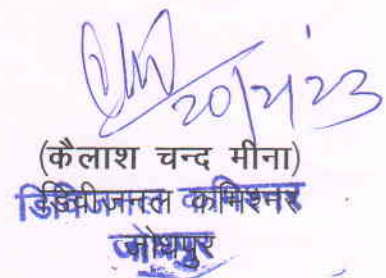 20/2/23
(कैलाश चन्द मीना)
डिवीजनल कमिश्नर
जोधपुर